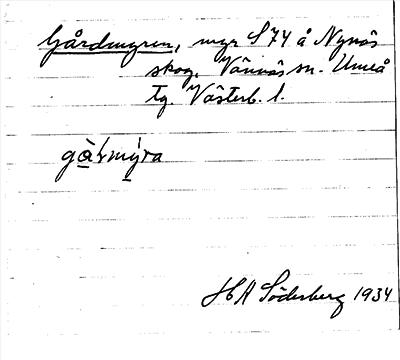 Gårdmyren, myr S74 å Nynäs
skog, Vännäs sn. Umeå
tg. Västerb. l.
gà̱rmý̱ra
HA Söderberg 1934